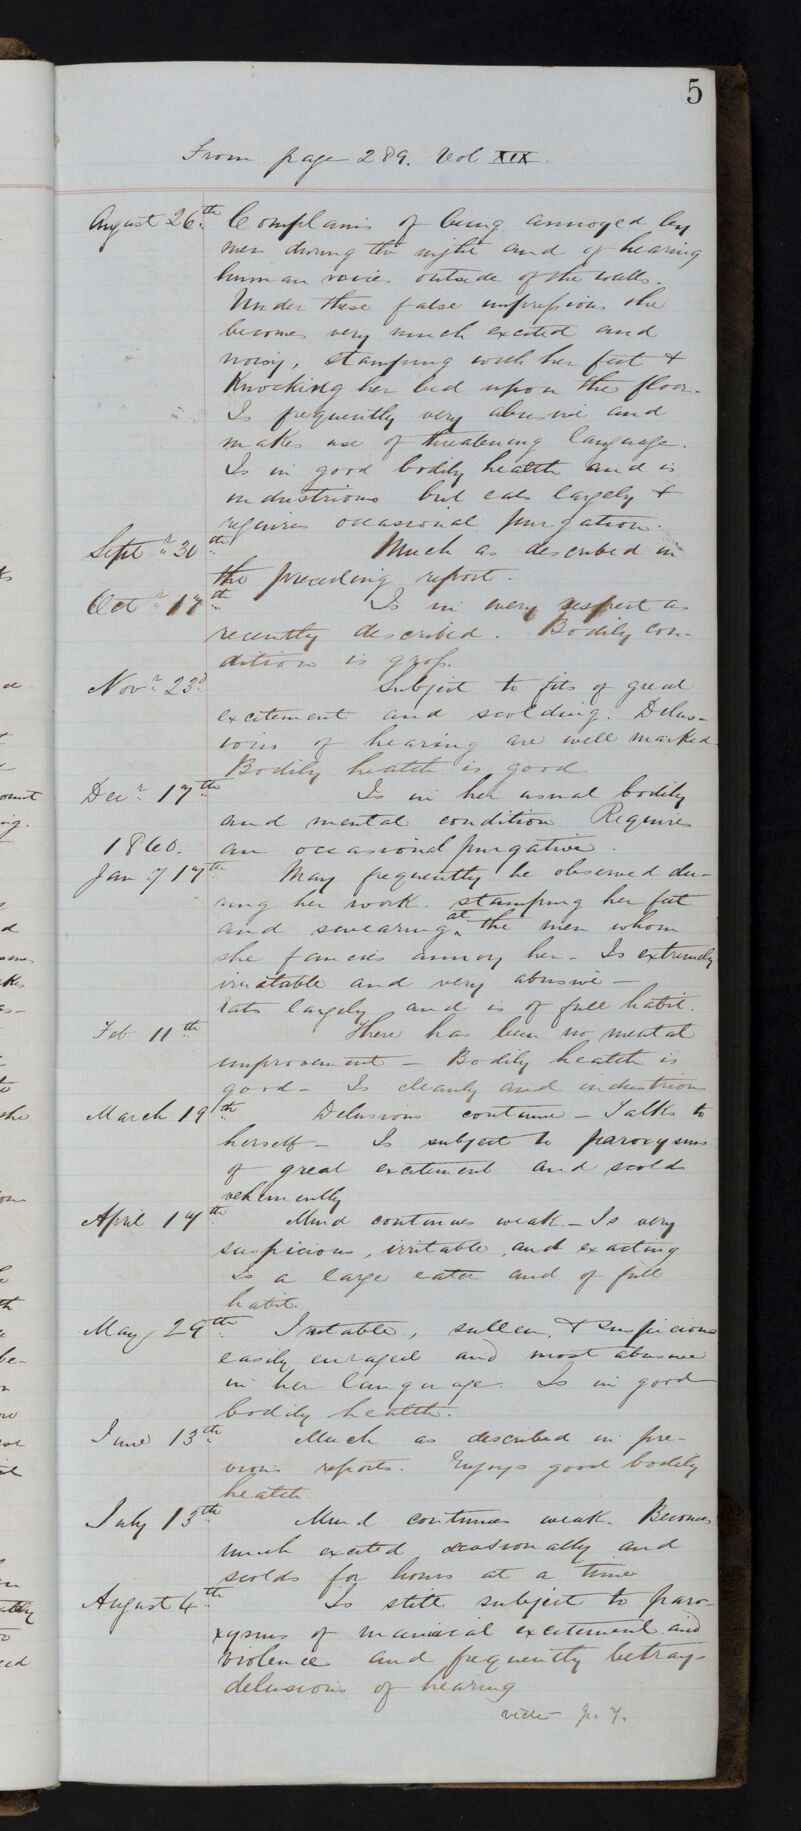 5
From page 289. Vol XIX.
August 26th. Complains of being annoyed by
men during the night and of hearing
human voices outside of the walls.
Under these false impressions she
becomes very much excited and
noisy, stamping with her feet &
Knocking her bed upon the floor.
Is frequently very abusive and
makes use of threatening language.
Is in good bodily health and is
industrious but eats largely &
requires occasional purgation.
Septr. 30th. Much as described in
the preceding report.
Octr. 17th. Is in every respect as
recently described. Bodily con-
dition is good.
Novr. 23d. Subject to fits of great
excitement and scolding. Delus-
ions of hearing are well marked.
Bodily health is good
Decr. 17th. Is in her usual bodily
and mental condition Requires
1860. an occasional purgative.
Jany 17th. May frequently be observed du-
ring her work. stamping her feet
and swearing at the men whom
she fancies annoy her - Is extremely
irritable and very abusive -
Eats largely and is of full habit.
Feb 11th There has been no mental
improvement - Bodily health is
good - Is cleanly and industrious
March 19th. Delusions continue - Talks to
herself - Is subject to paroxysms
of great excitement and scolds
vehemently
April 17th. Mind continues weak - Is very
suspicious, irritable, and exacting
Is a large eater and of full
habit.
May 29th. Irritable, sullen, & suspicious
easily enraged and most abusive
in her language. Is in good
bodily health.
June 13th. Much as described in pre-
vious reports. Enjoys good bodily
health.
July 13th. Mind continues weak. Becomes
much excited occasionally and
scolds for hours at a time
August 4th. Is still subject to paro-
xysms of maniacal excitement and
violence and frequently betrays
delusions of hearing
vide p. 7.